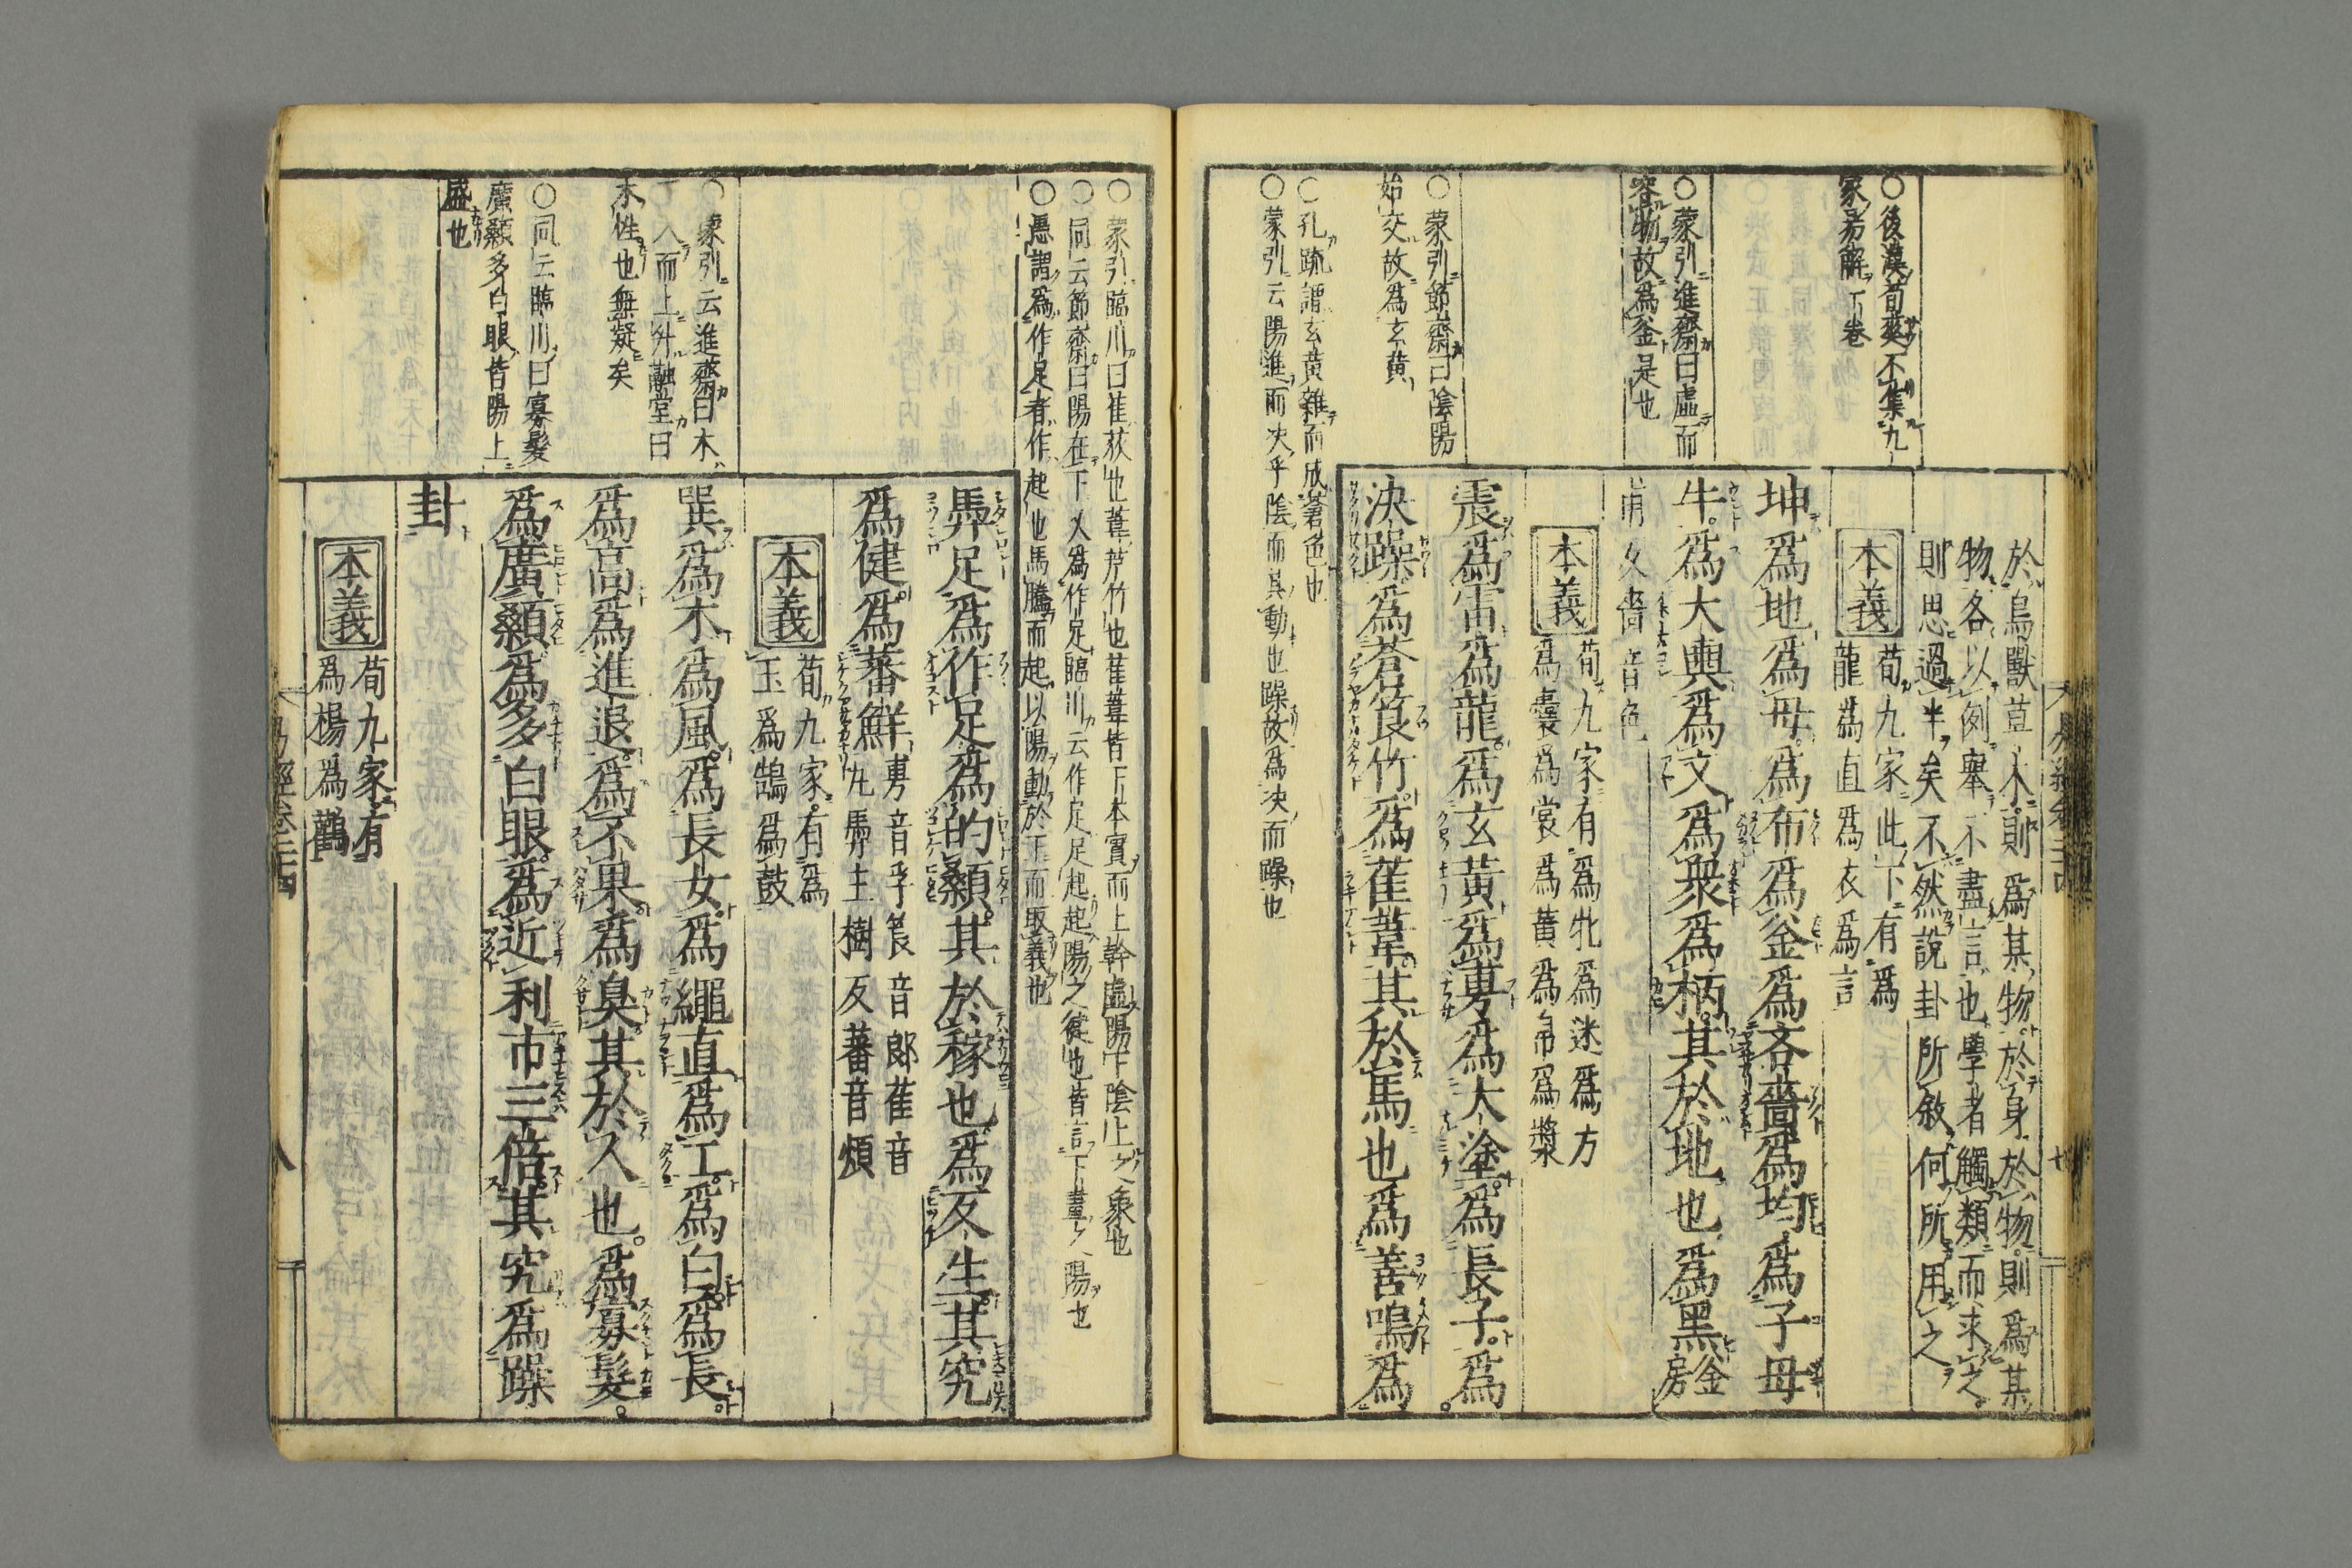 ○後漢荀爽不集九
家易解 下卷
○蒙引進齋曰虛而
容物故爲釜是也
○蒙引節齋曰陰陽
始交故爲玄黄
○孔疏謂玄黄雜而成蒼色也
○蒙引云陽進而决乎陰而其動也躁故爲决而躁也
於鳥獸草木則爲某物於身於物則爲某
物各以例舉不盡言也學者觸類而求之
則思過半矣不然說卦所敘何所用之
本義
荀九家此下有爲
龍爲直爲衣爲言
坤爲地爲母爲布爲釜爲吝嗇爲均爲子母
牛爲大輿爲文爲衆爲柄其於地也爲黑 釜房
甫反嗇音色
本義
荀九家有爲牝爲迷爲方
爲囊爲裳爲黃爲帛爲漿
震爲雷爲龍爲玄黃爲旉爲大塗爲長子爲
決躁爲蒼筤竹爲萑葦其於馬也爲善鳴爲
○蒙引臨川曰萑荻也葦芦竹也萑葦皆下本實而上幹虛陽下陰上之象也
○同云節齋曰陽在下爻爲作足臨川云作足足起起陽之健也皆言下畫之陽也
○愚謂爲作足者作起也馬騰而起以陽動於下而取義也
馵足爲作足爲的顙其於稼也爲反生其究
爲健爲蕃鮮 旉音孚筤音郎萑音
九馵主樹反蕃音煩
本義
荀九家有爲
玉爲鵠爲鼓
○蒙引云進齋曰木
入而上升融堂曰
木性也無疑矣
○同云臨川曰寡髮
廣顙多白眼皆陽上
盛也
巽爲木爲風爲長女爲繩直爲工爲白爲長
爲高爲進退爲不果爲臭其於人也爲寡髮
爲廣顙爲多白眼爲近利市三倍其究爲躁
卦
本義
荀九家有
爲楊爲鸛
易經卷二十四
八